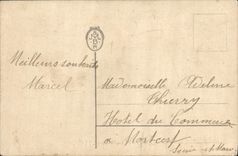 Meilleurs souhaits
Marcel
Mademoiselle
Thierry
Hotel du Commerce
a
Seine et Marne